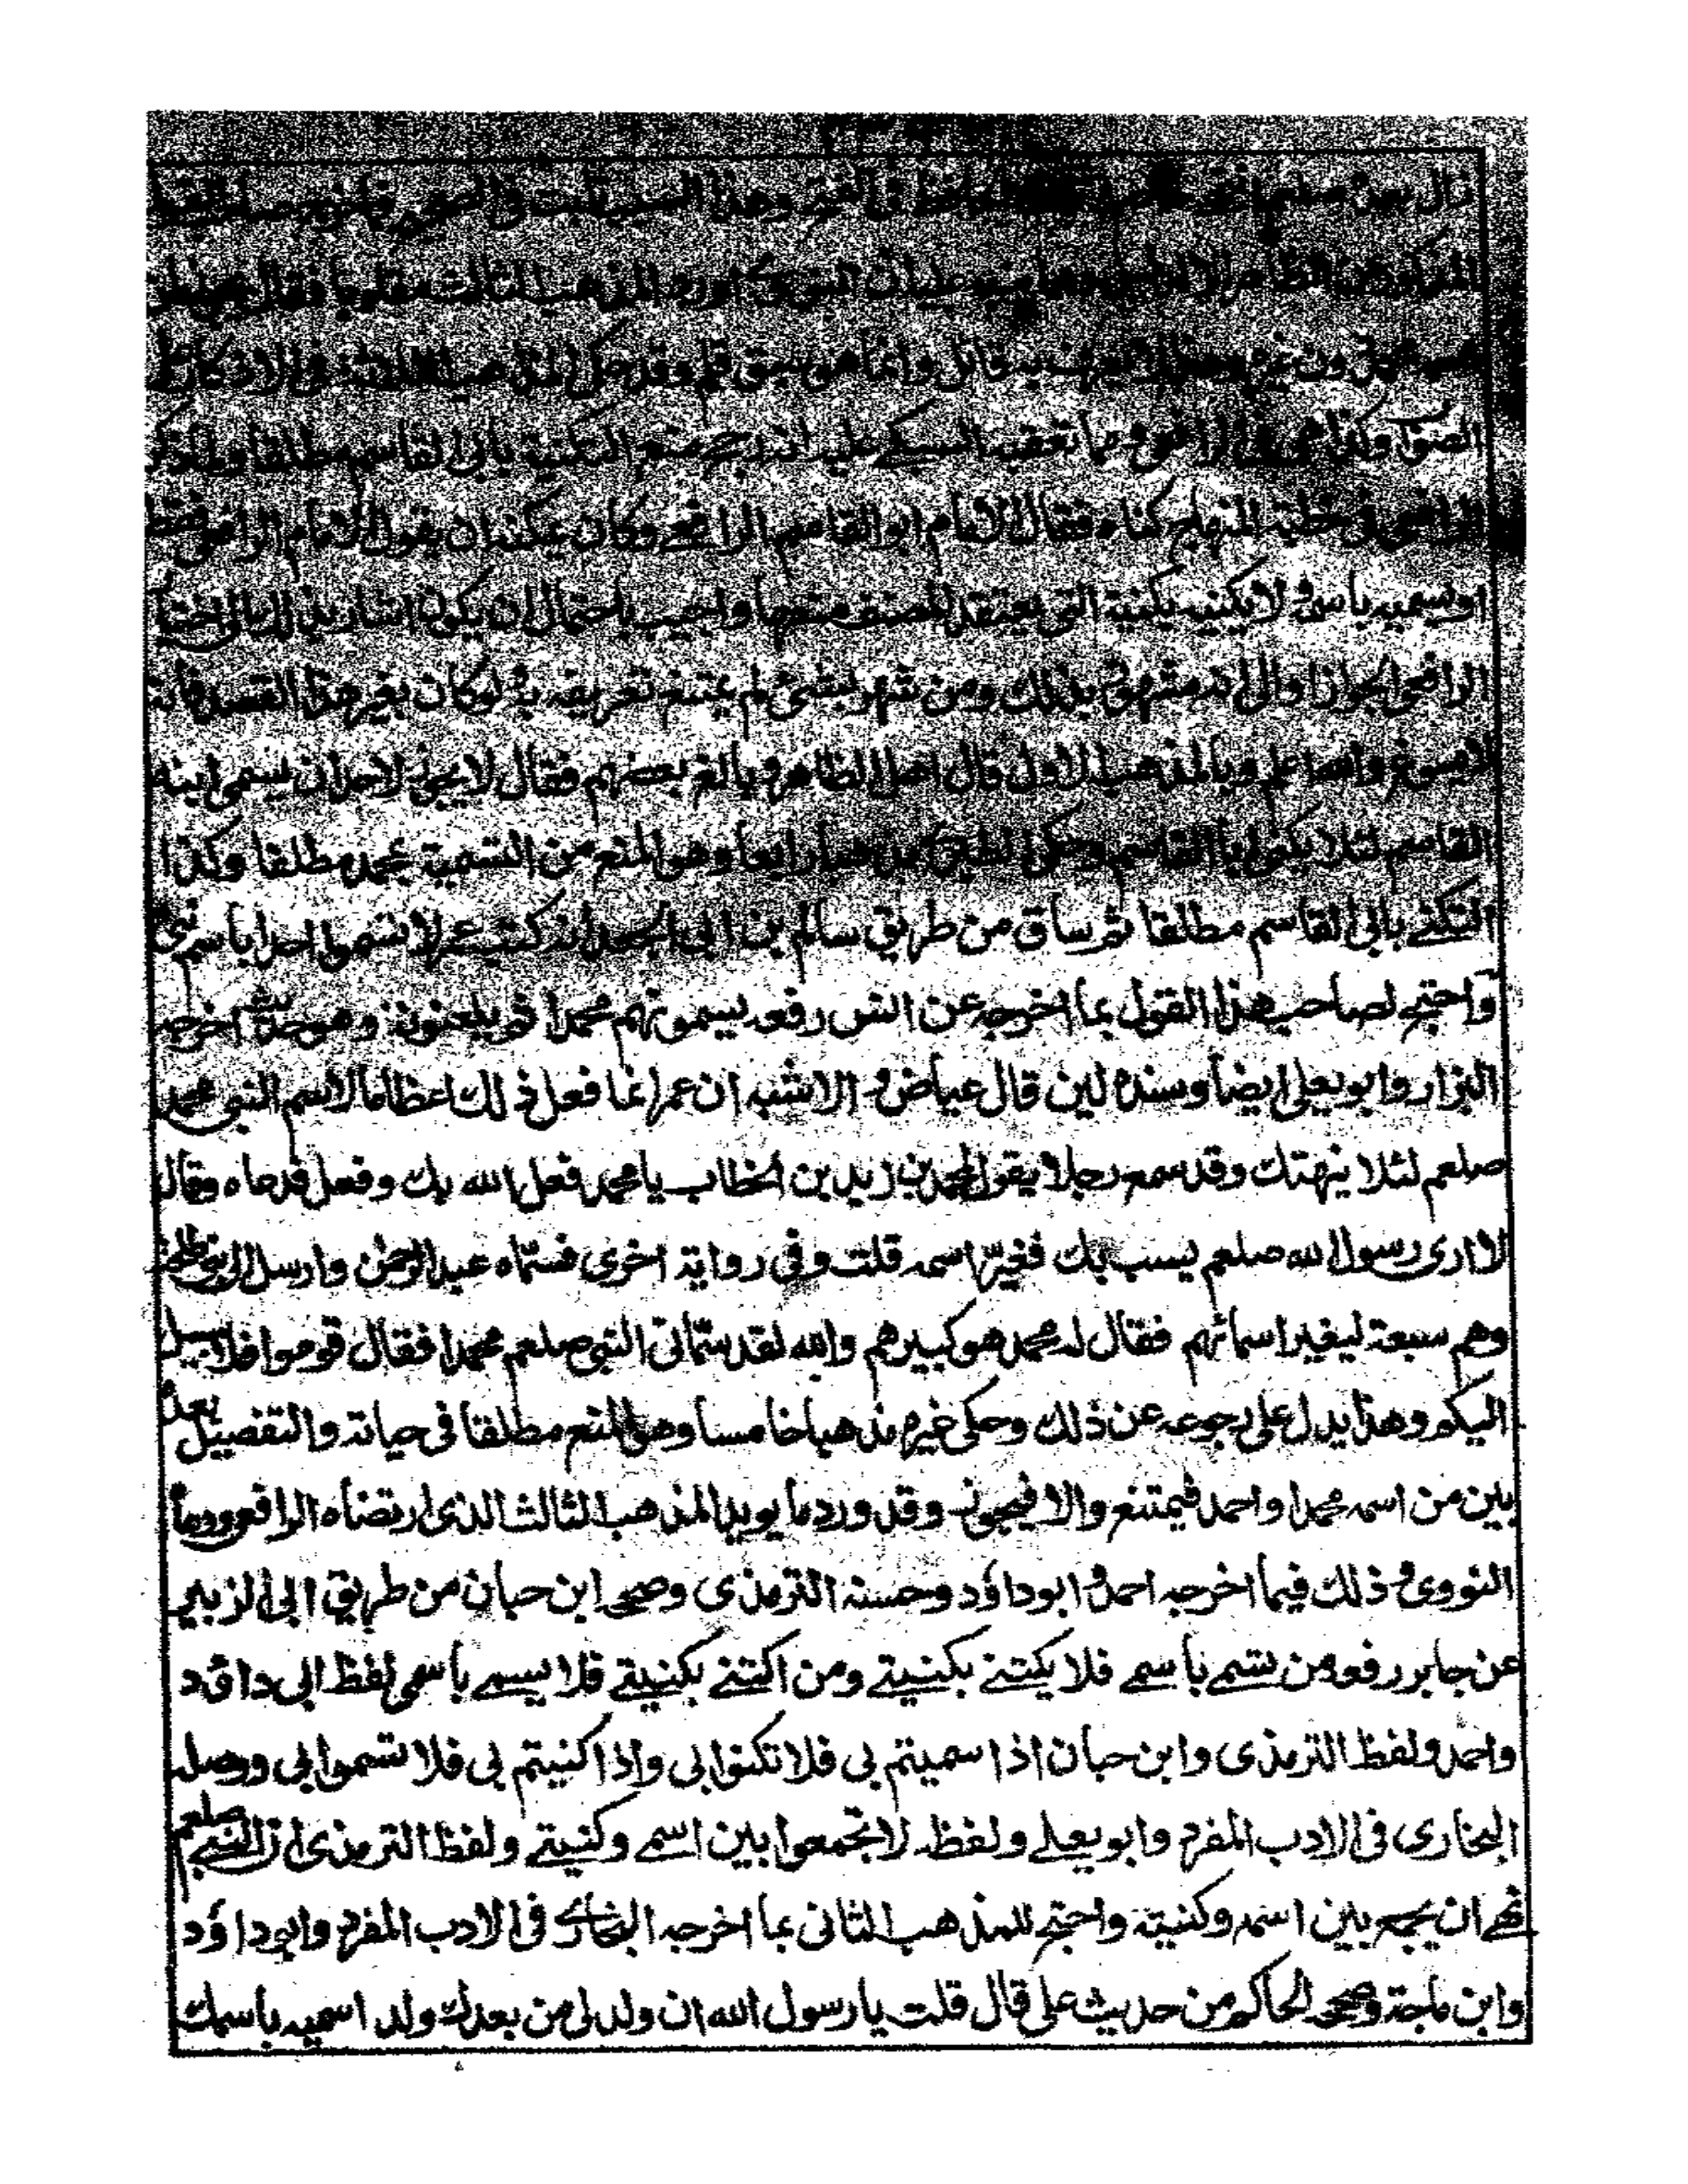 زال بعده صلعم قال الحافظ فى الفتح وهذا السبب ثابت فى الصحيح
النووى اورد المذهب الثالث مقلوبا فقال يجوز لمن
لا يعرف به قائل وانما هو سبق قلم وقد حكى المذاهب الثلاثة فى الاذكار على
الصواب وكذا هى فى الرافعى ومما تعقبه السبكے عليه انه رجح منع التكنية بابى القاسم مطلقا ولما ذكر
الرافعى فى خطبة المنهاج كناه فقال الامام ابو القاسم الرافعے وكان يمكنه ان يقول الامام الرافعى فقط
او يسميه باسمه ولا يكنيه بكنية التى يعتقد المصنف منعها واجيب باحتمال ان يكون اشار بذلك الى اختيار
الرافعى الجواز او الى انه مشهور بذلك ومن شهر بشئ لم يمتنع تعريفه به ولو كان بغير هذا القصد فانه
لا يسوغ والله اعلم وبالمذهب الاول قال اهل الظاهر وبالغ بعضهم فقال لا يجوز لاحد ان يسمى ابنه
القاسم لئلا يكنى ابا القاسم وحكى الطبرى مذهبا رابعا وهو المنع من التسمية بمحمد مطلقا وكذا
التكنى بابى القاسم مطلقا ثم ساق من طريق سالم بن ابى الجعد انه كتب عمر لا تسموا احدا باسم نبى
واحتج لصاحب هذا القول بما اخرجه عن انس رفعه يسمونهم محمدا ثم يلعنونهم وهو حديث اخرجه
البزار وابو يعلى ايضا وسنده لين قال عياض و الاشبه ان عمر انما فعل ذلك اعظاما لاسم النبى محمد
صلعم لئلا ينهتك وقد سمع رجلا يقول لمحمد بن زيد بن الخطاب يا محمد فعل الله بك وفعل فدعاه وقال
لا ارى رسول الله صلعم يسب بك فغيّر اسمه قلت وفى رواية اخرى فسمّاه عبد الرحمن وارسل الى بنى طلحة
وهم سبعة ليغير اسمائهم فقال له محمد هو كبيرهم والله لقد سمّانى النبى صلعم محمدا فقال قوموا فلا سبيل
اليكم وهذا يدل على رجوعه عن ذلك وحكى غيره مذهبا خامسا وهو المنع مطلقا فى حياته والتفصيل بعده
بين من اسمه محمدا واحمد فيمتنع والا فيجوز وقد ورد ما يويد المذهب الثالث الذى ارتضاه الرافعى ووهاه
النووى و ذلك فيما اخرجه احمد و ابو داؤد وحسنه الترمذى وصححه ابن حبان من طريق ابى الزبير
عن جابر رفعه من تسمے باسمے فلا يكتنے بكنيتے ومن اكتنے بكنيتے فلا يسمے باسمى لفظ ابى داؤد
واحمد ولفظ الترمذى وابن حبان اذا سميتم بى فلا تكنوا بى واذا كنيتم بى فلا تسموا بى ووصله
البخارى فى الادب المفرد وابو يعلے ولفظه لا تجمعوا بين اسمے وكنيتے ولفظ الترمذى ان النبے صلعم
نهے ان يجمع بين اسمه وكنيته واحتج للمذهب الثانى بما اخرجه البخارى فى الادب المفرد وابو داؤد
وابن ماجة وصححه الحاكم من حديث على قال قلت يا رسول الله ان ولد لى من بعدك ولد اسميه باسمك